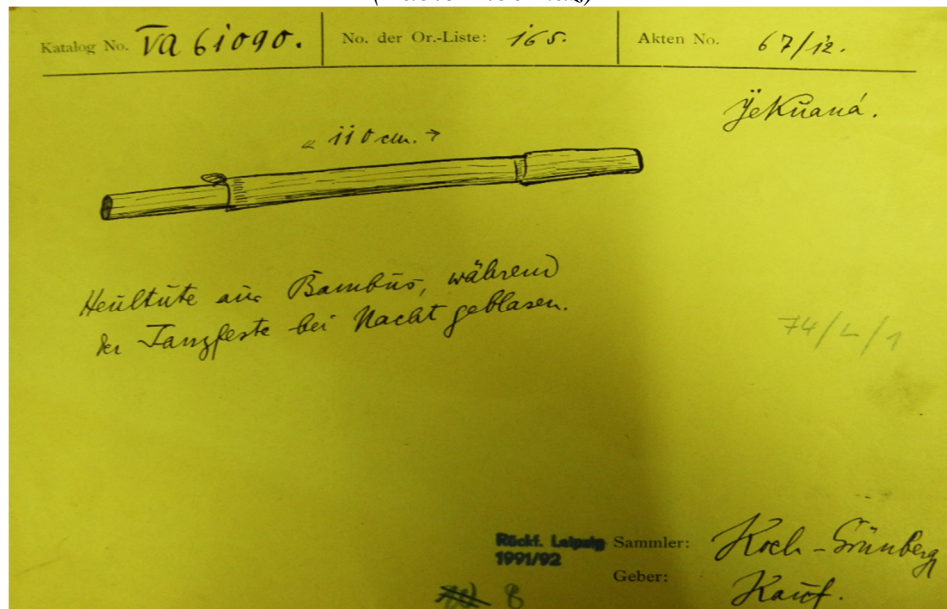 Katalog No. VA 61090. No. der Or.-Liste: 165. Akten No. 67/12.
Yekuaná.
« 110 cm. →
Heultute aus Bambus, während
der Tanzfeste bei Nacht geblasen.
74/L/1
Rückf. Leipzig
1991/92
Sammler: Koch-Grünberg
Geber: Kauf.
8